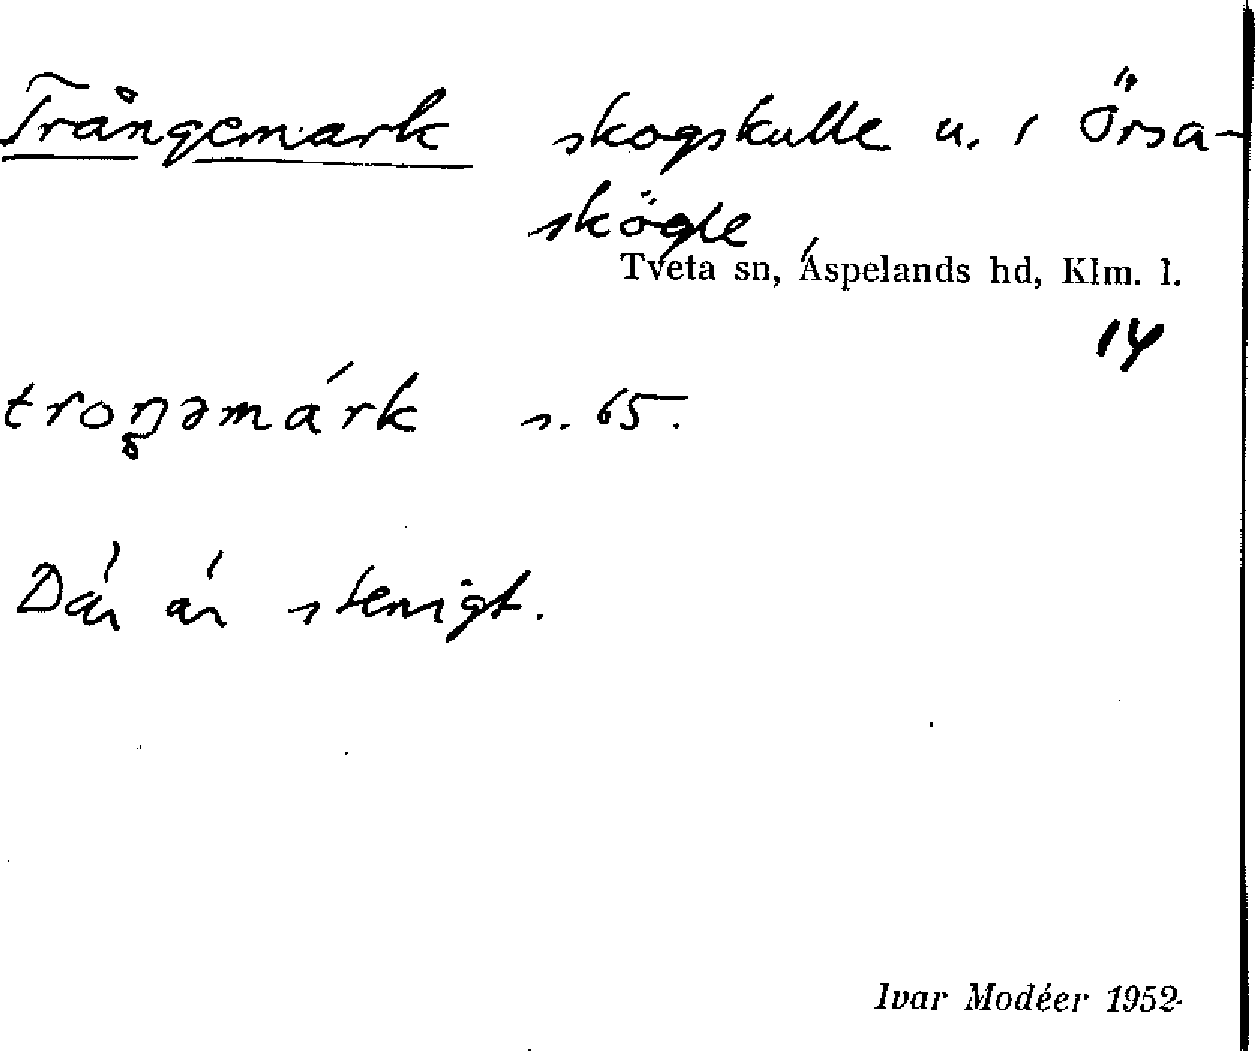 Trångemark skogskulle u. i Örsa-
skögle
Tveta sn, Aspelands hd, Klm. l.
14
troŋəmárk s. 65.
Där är stenigt.
Ivar Modéer 1952